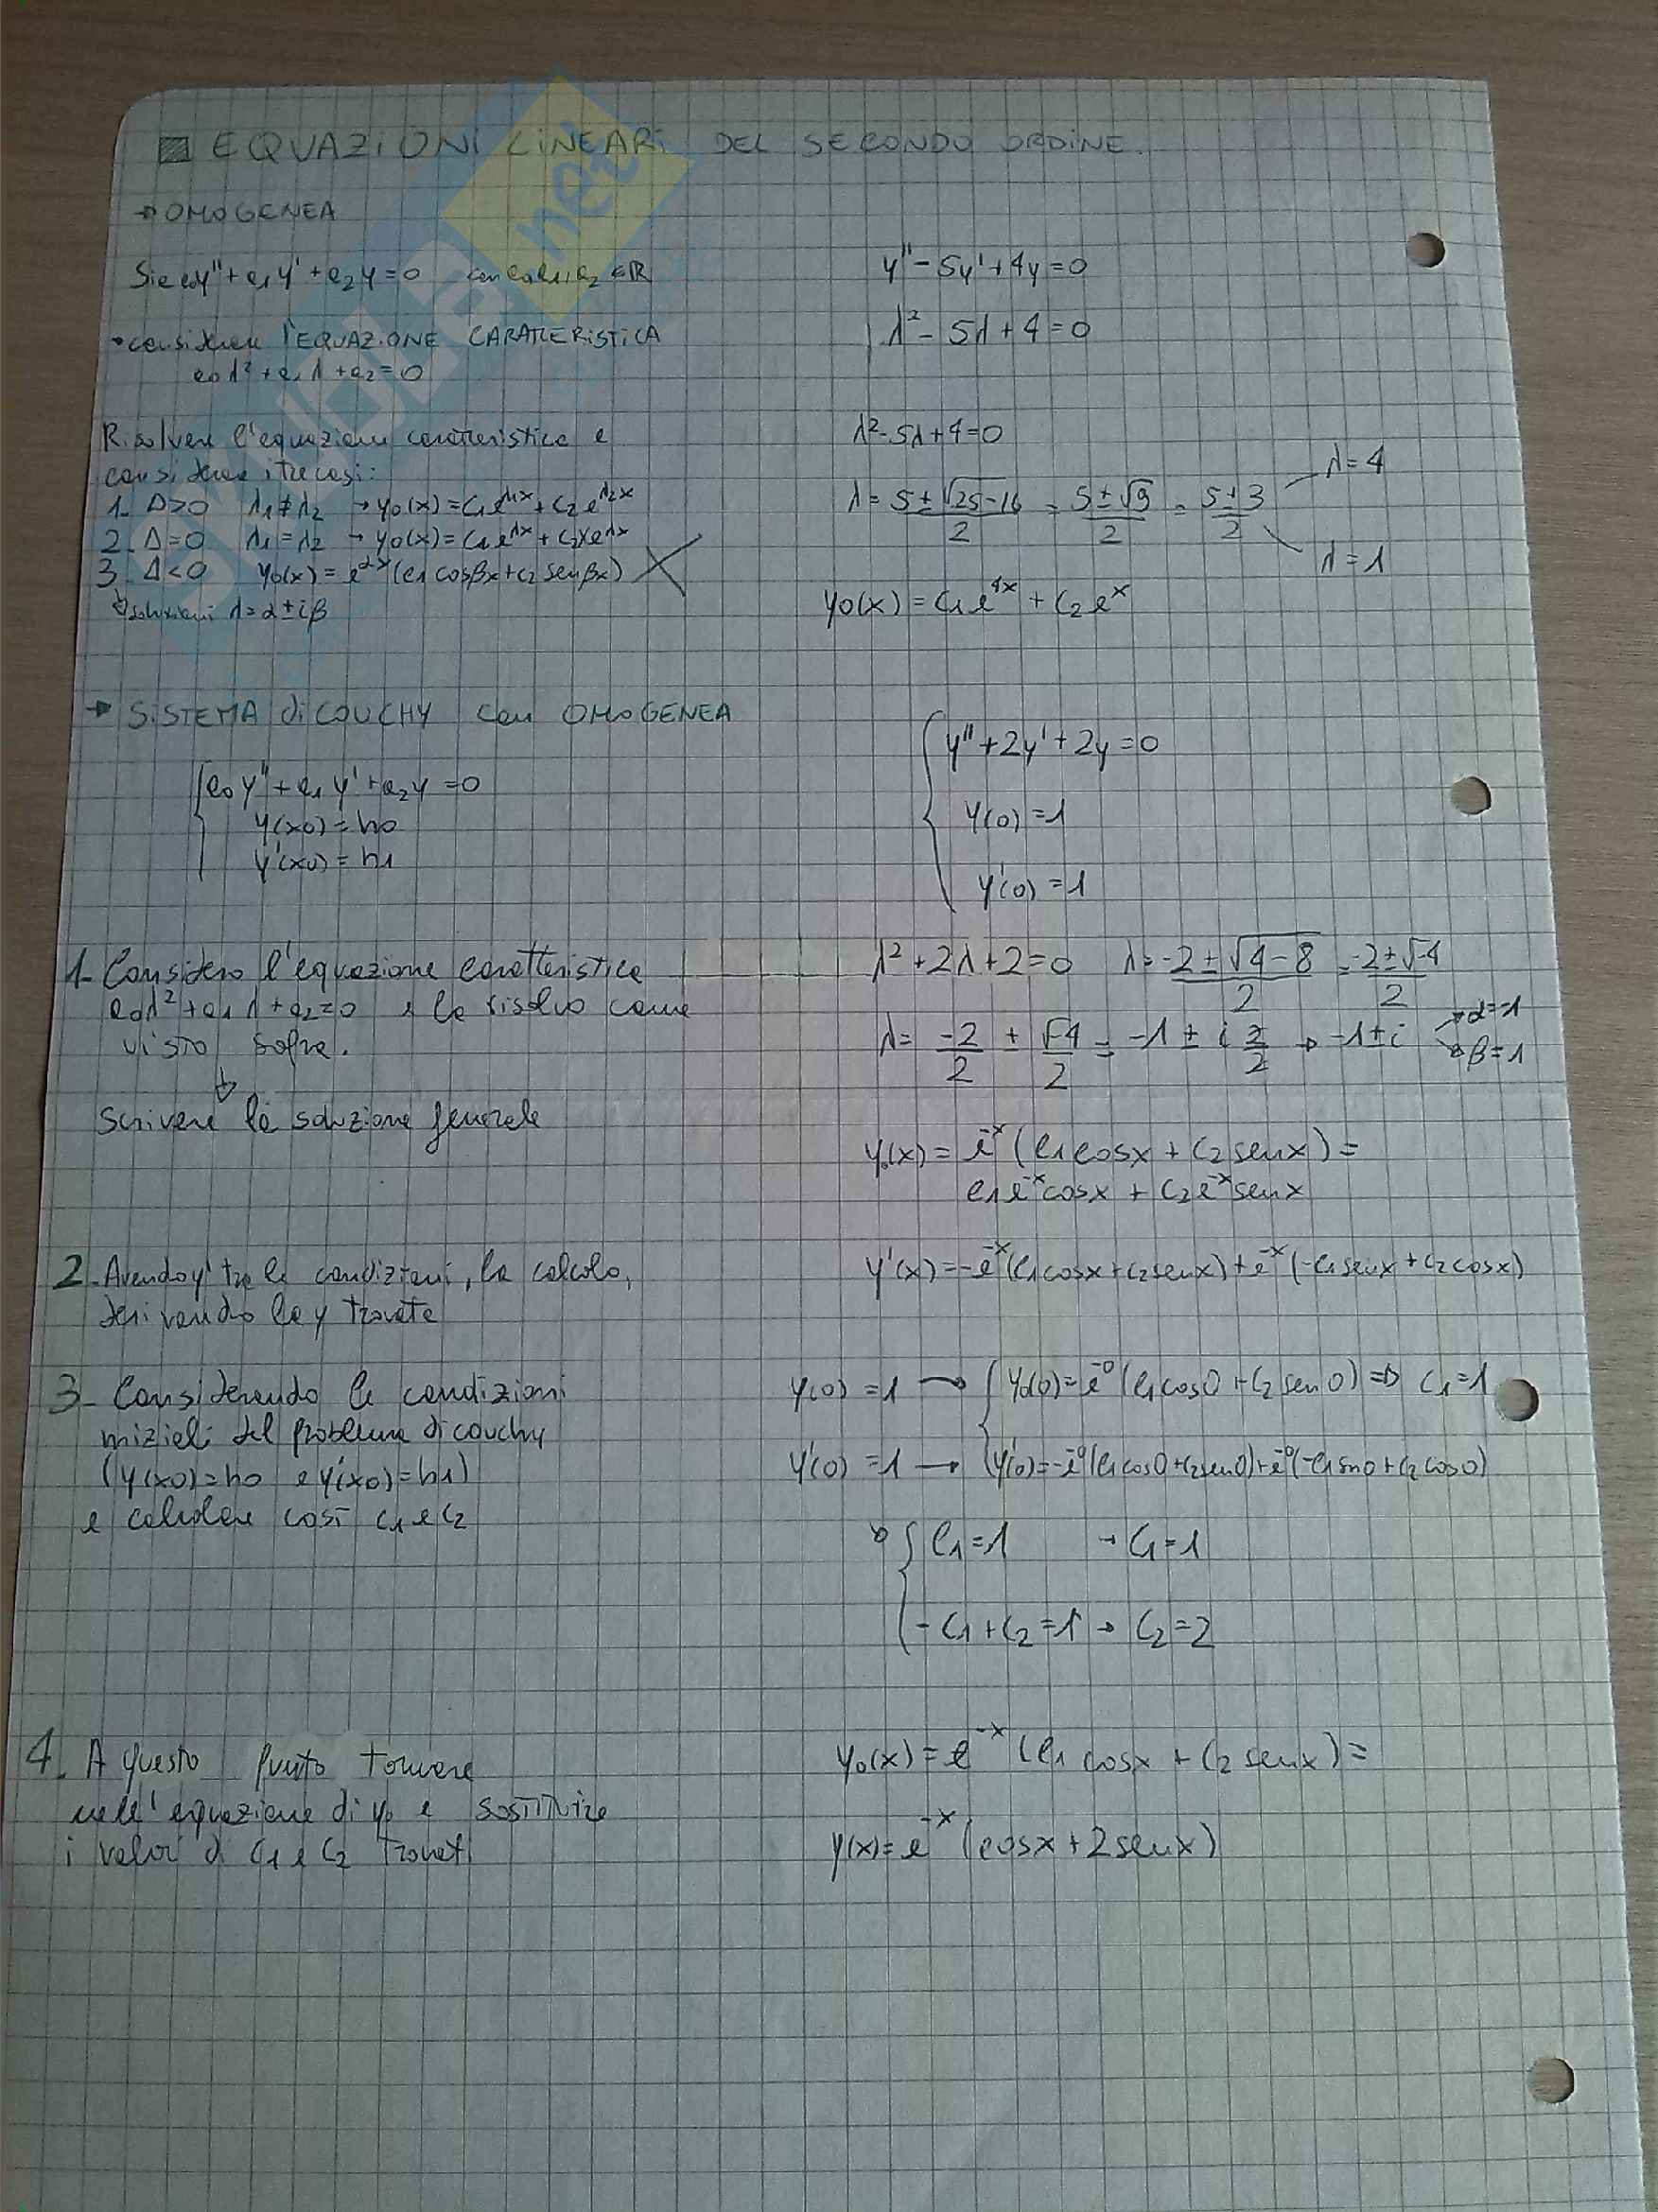 EQUAZIONI LINEARI DEL SECONDO ORDINE.
→ OMOGENEA
Sia a0y'' + a1y' + a2y = 0 con a0,a1,a2 ∈ R
y'' - 5y' + 4y = 0
• considerare l'EQUAZIONE CARATTERISTICA
a0λ² + a1λ + a2 = 0
λ² - 5λ + 4 = 0
Risolvere l'equazione caratteristica e
considerare i tre casi:
1- Δ>0 λ1≠λ2 → y0(x) = c1e^λ1x + c2e^λ2x
2- Δ=0 λ1=λ2 → y0(x) = c1e^λx + c2xe^λx
3- Δ<0 y0(x) = e^αx (c1 cosβx + c2 senβx)
↳ soluzioni λ = α ± iβ
λ² - 5λ + 4 = 0
λ = 5 ± √25-16 / 2 = 5 ± √9 / 2 = 5 ± 3 / 2
λ = 4
λ = 1
y0(x) = c1e^4x + c2e^x
→ SISTEMA di COUCHY con OMOGENEA
{ a0y'' + a1y' + a2y = 0
y(x0) = h0
y'(x0) = h1
{ y'' + 2y' + 2y = 0
y(0) = 1
y'(0) = 1
1- Considero l'equazione caratteristica
a0λ² + a1λ + a2 = 0 e la risolvo come
visto sopra.
↓
Scrivere la soluzione generale
λ² + 2λ + 2 = 0 λ = -2 ± √4-8 / 2 = -2 ± √-4 / 2
λ = -2/2 ± √-4/2 = -1 ± i 2/2 → -1 ± i
α=-1
β=1
y0(x) = e^-x (c1 cosx + c2 senx) =
c1e^-x cosx + c2e^-x senx
2- Avendo y' tra le condizioni, la calcolo,
derivando la y trovata
y'(x) = -e^-x (c1 cosx + c2 senx) + e^-x (-c1 senx + c2 cosx)
3- Considerando le condizioni
iniziali del problema di couchy
(y(x0) = h0 e y'(x0) = h1)
e calcolare così c1 e c2
y(0) = 1 → { y0(0) = e^-0 (c1 cos0 + c2 sen0) ⇒ c1 = 1
y'(0) = 1 → { y'(0) = -e^-0 (c1 cos0 + c2 sen0) + e^-0 (-c1 sen0 + c2 cos0)
↳ { c1 = 1 → c1 = 1
-c1 + c2 = 1 → c2 = 2
4. A questo punto tornare
nell'equazione di y0 e sostituire
i valori di c1 e c2 trovati
y0(x) = e^-x (c1 cosx + c2 senx) =
y(x) = e^-x (cosx + 2senx)
SKUOLA
net